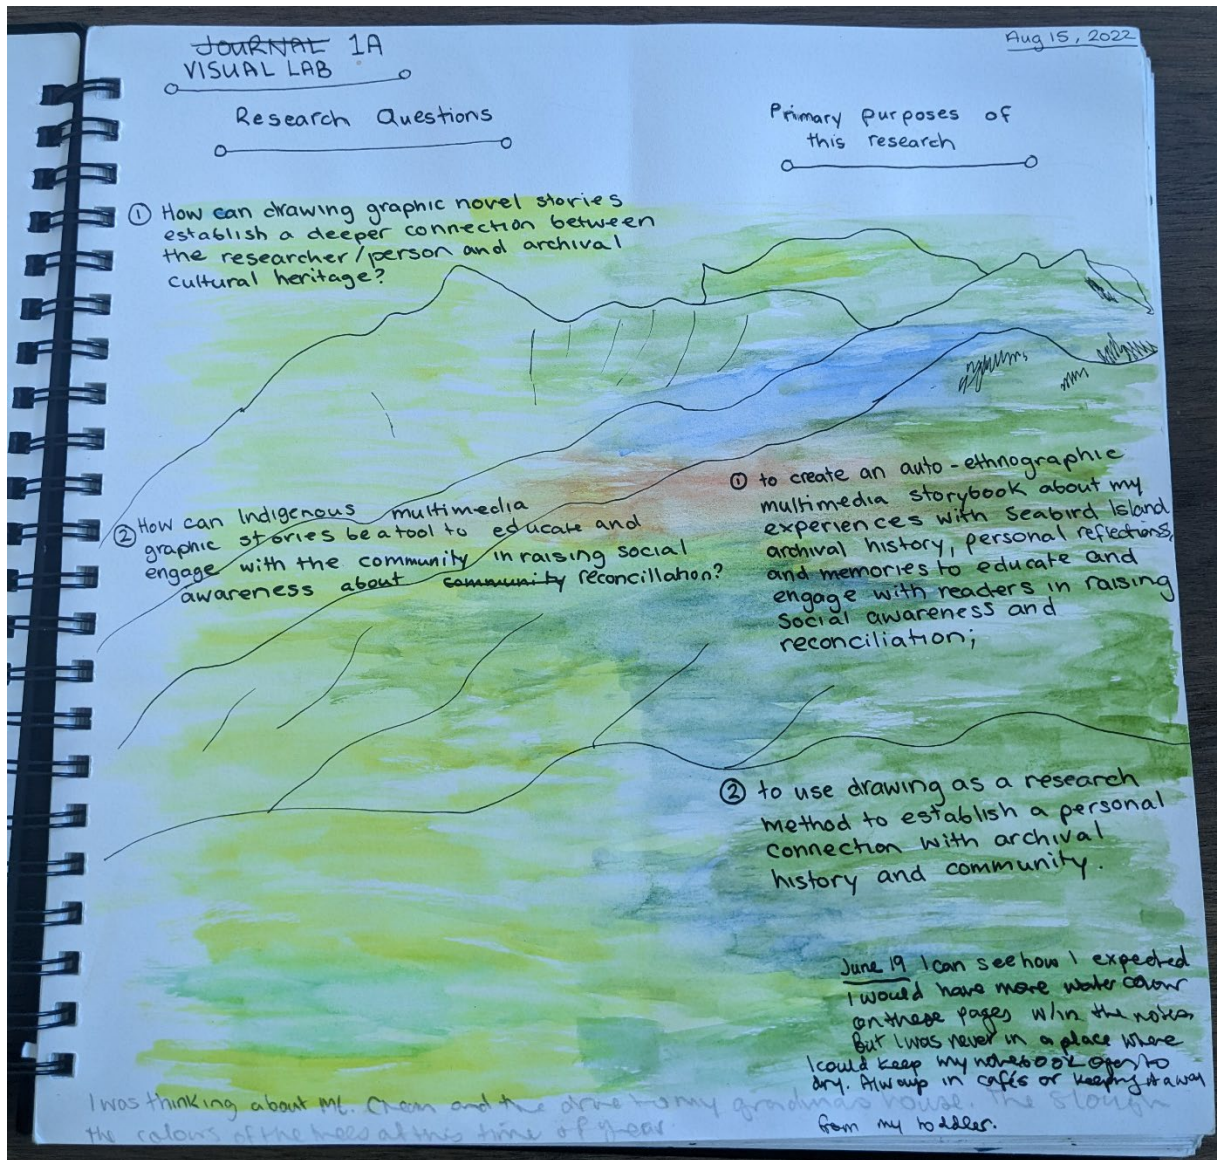 JOURNAL 1A
VISUAL LAB
Aug 15, 2022
Research Questions
① How can drawing graphic novel stories
establish a deeper connection between
the researcher/person and archival
cultural heritage?
② How can Indigenous multimedia
graphic stories be a tool to educate and
engage with the community in raising social
awareness about community reconciliation?
Primary purposes of
this research
① to create an auto-ethnographic
multimedia storybook about my
experiences with Seabird Island
archival history, personal reflections,
and memories to educate and
engage with readers in raising
social awareness and
reconciliation;
② to use drawing as a research
method to establish a personal
connection with archival
history and community.
June 19 I can see how I expected
I would have more water colour
on these pages w/in the notes
But I was never in a place where
I could keep my notebook open to
dry. Always in cafés or keeping it away
from my toddler.
I was thinking about Mt. Cheam and the drive to my grandmas house. The slough
the colours of the trees at this time of year.